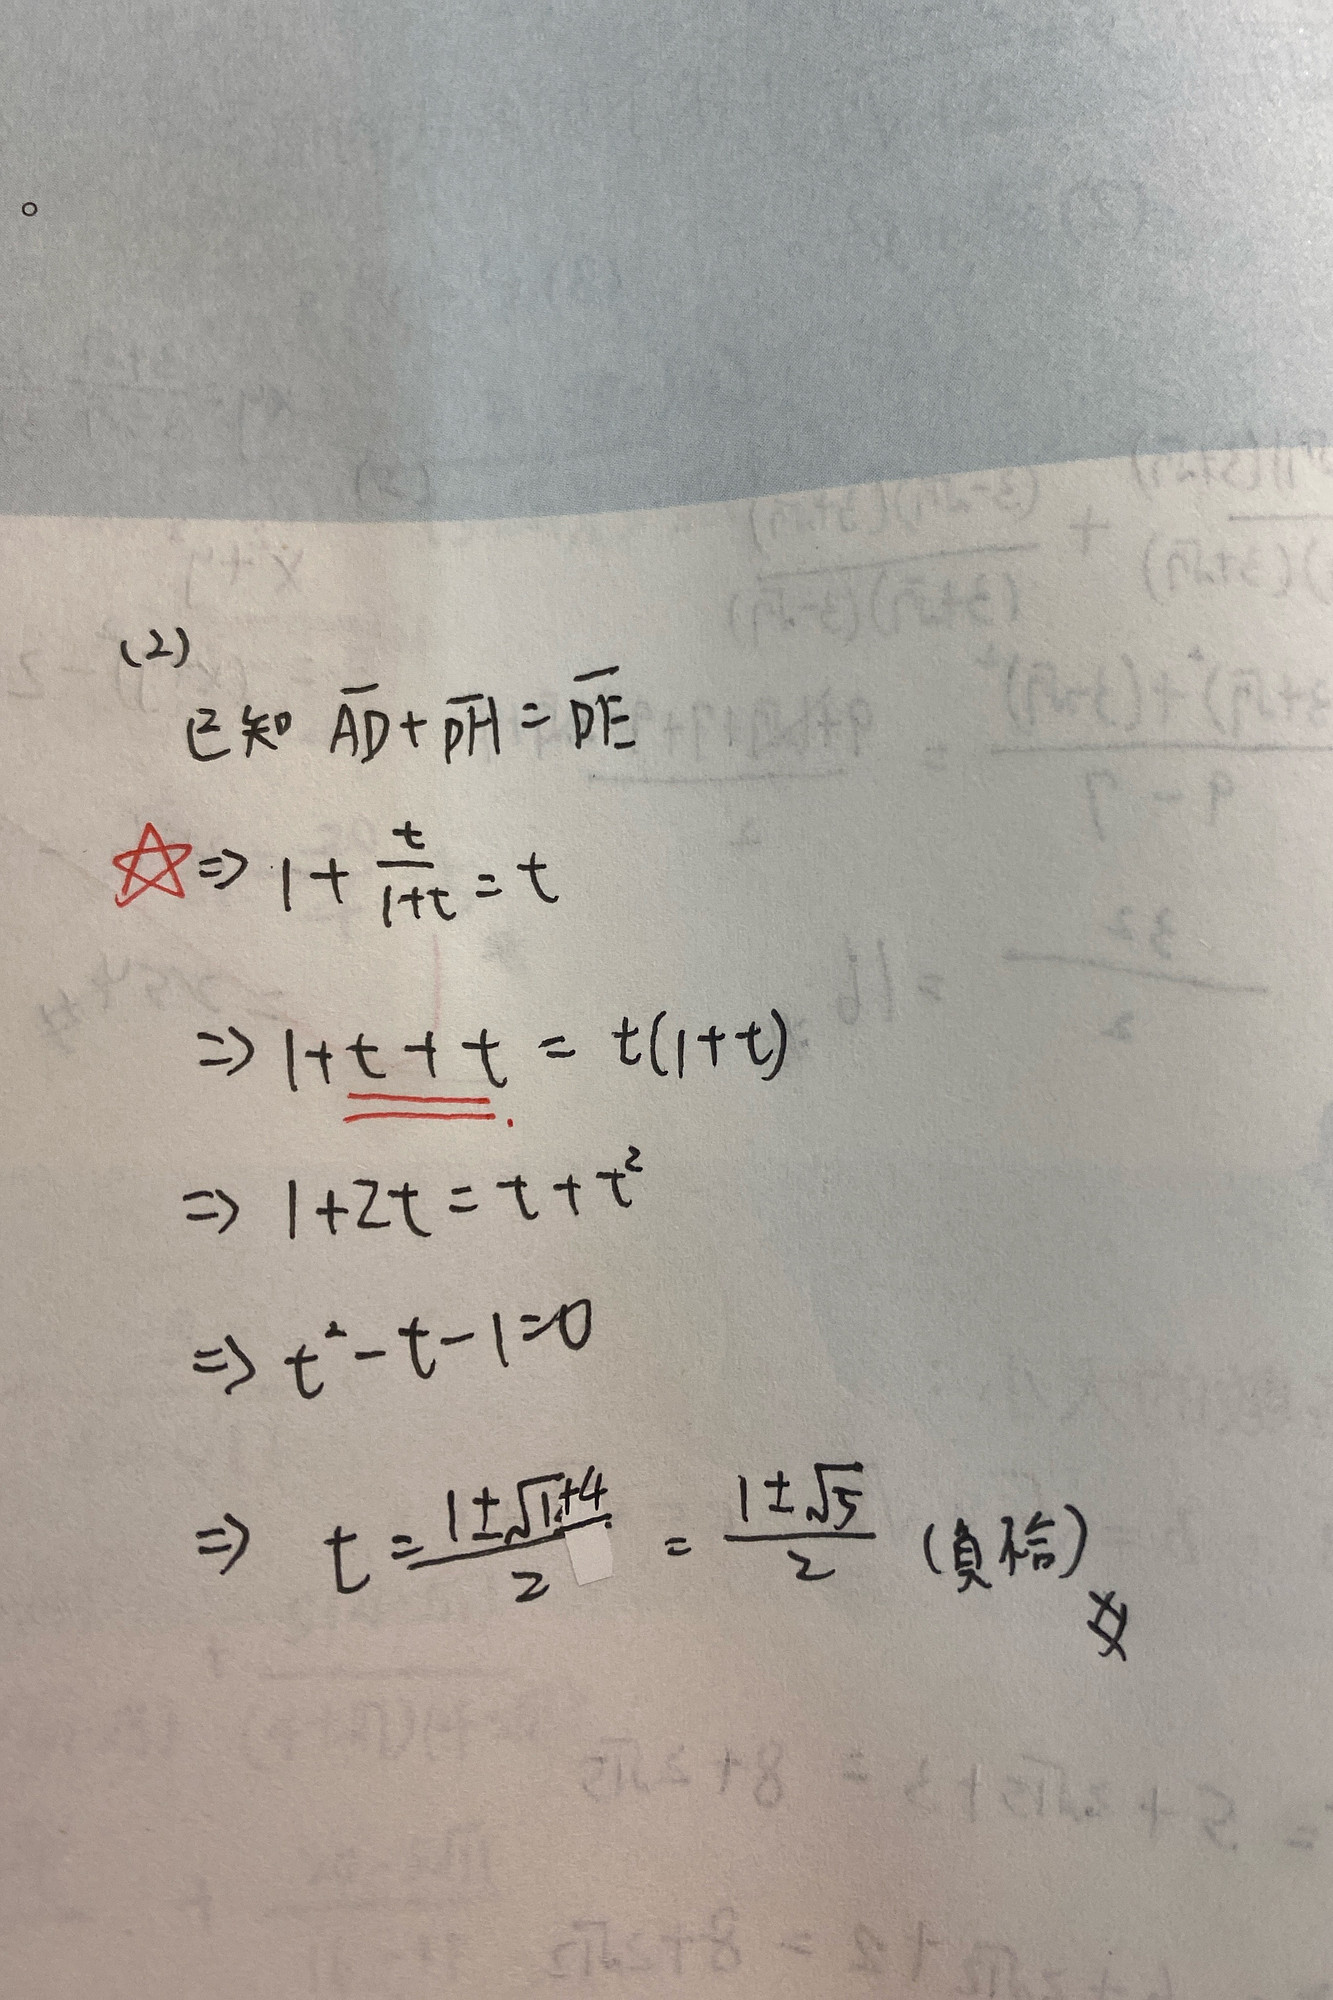 。
(2)
已知 \overline{AD}+\overline{DH}=\overline{DE}
☆⇒ 1+\frac{t}{1+t}=t
⇒ 1+t+t = t(1+t)
⇒ 1+2t=t+t²
⇒ t²-t-1=0
⇒ t=\frac{1±\sqrt{1+4}}{2} = \frac{1±\sqrt{5}}{2} (負不合)